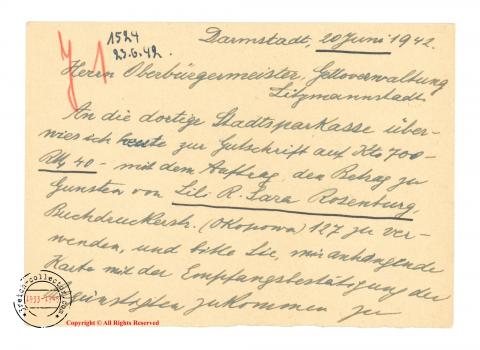 Darmstadt, 20 Juni 1942.
1524
23.6.42.
Herrn Oberbürgermeister, Gettoverwaltung
Litzmannstadt
An die dortige Stadtsparkasse über-
wies ich heute zur Gutschrift auf Kto 700-
RM 40 - mit dem Auftrag, den Betrag zu
Gunsten von Lili R. Sara Rosenburg
Buchdruckerstr. (Okopowa) 127 zu ver-
wenden, und bitte Sie, mir anhangende
Karte mit der Empfangsbestätigung der
Begünstigten zukommen zu
Copyright © All Rights Reserved